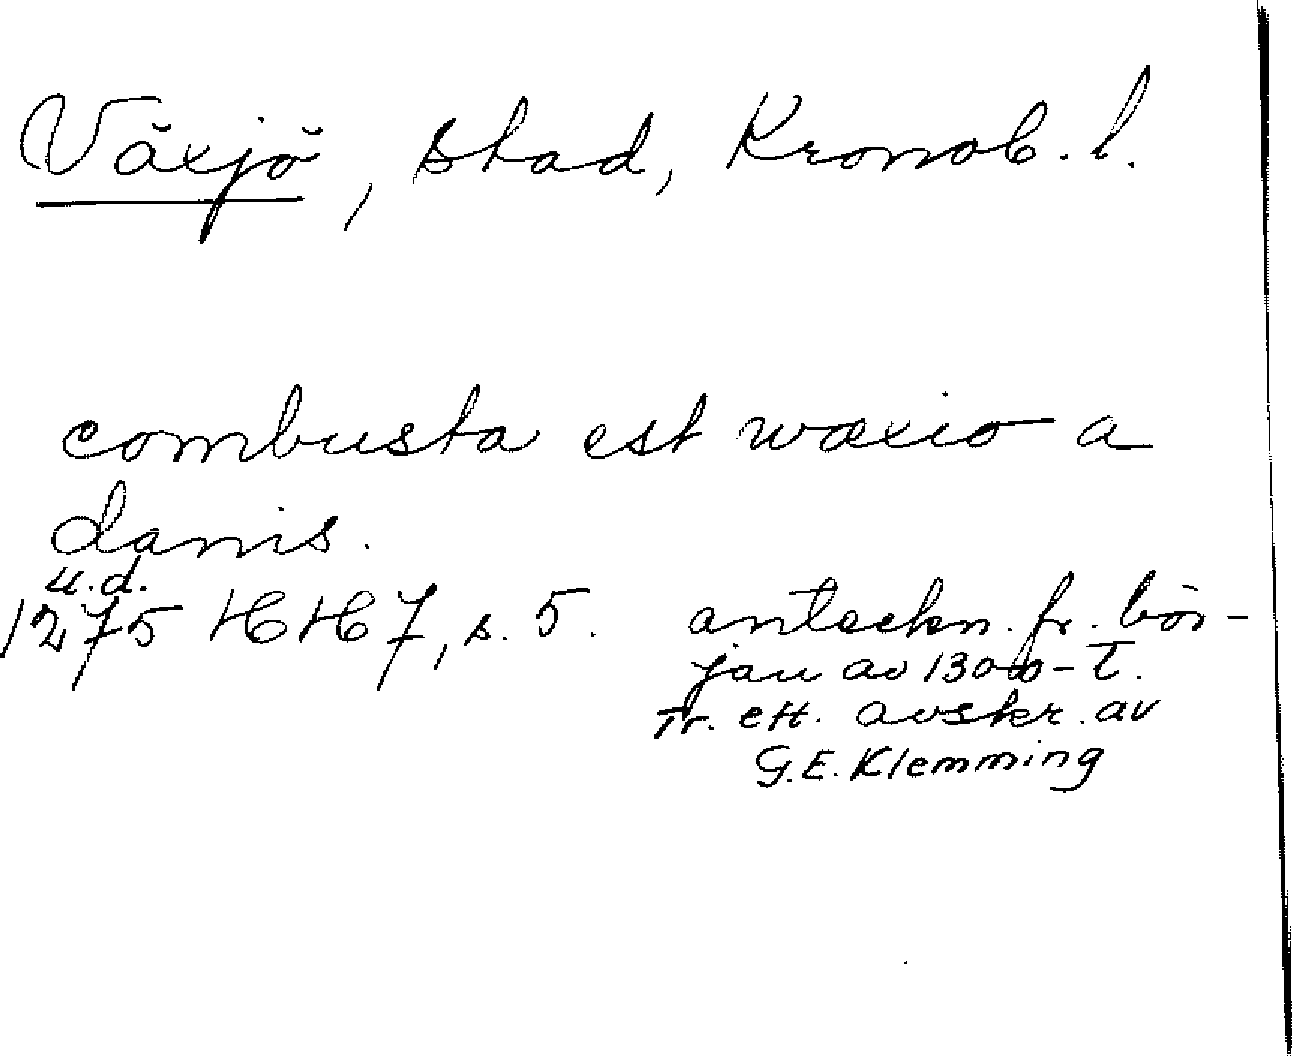 Växjö, stad, Kronob. l.
combusta est wæxio a
danis.
u.d.
1275 HH 7, s. 5. anteckn. fr. bör-
jan av 1300-t.
Tr. ett. avskr. av
G.E. Klemming